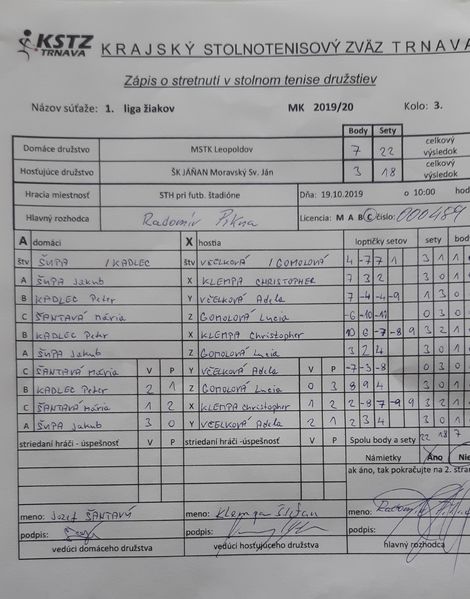 KSTZ
TRNAVA
KRAJSKÝ STOLNOTENISOVÝ ZVÄZ TRNAVA
Zápis o stretnutí v stolnom tenise družstiev
Názov súťaže: 1. liga žiakov MK 2019/20 Kolo: 3.
Body Sety
Domáce družstvo MSTK Leopoldov 7 22 celkový výsledok
Hosťujúce družstvo ŠK JÁŇAN Moravský Sv. Ján 3 18 celkový výsledok
Hracia miestnosť STH pri futb. štadióne Dňa: 19.10.2019 o 10:00 hod
Hlavný rozhodca Radomír Pikna Licencia: M A B C číslo: 000489
A domáci X hostia loptičky setov sety bod
štv ŠUPA / KADLEC štv VČELKOVÁ / GOMOLOVÁ 4 -7 7 1 3 1 1
A ŠUPA Jakub X KLEMPA CHRISTOPHER 7 3 2 3 0 1
B KADLEC Peter Y VČELKOVÁ Adela 7 -4 -4 -9 1 3 0
C ŠANTAVÁ Mária Z GOMOLOVÁ Lucia -6 -10 -11 0 3 0
B KADLEC Petr X KLEMPA Christopher 10 6 -7 -8 9 3 2 1
A ŠUPA Jakub Z GOMOLOVÁ Lucia 3 2 4 3 0 1
C ŠANTAVÁ Mária V P Y VČELKOVÁ Adela V P -7 -3 -8 0 3 0
B KADLEC Peter 2 1 Z GOMOLOVÁ Lucia 0 3 8 9 4 3 0 1
C ŠANTAVÁ Mária 1 2 X KLEMPA Christopher 1 2 2 -8 7 -9 9 3 2 1
A ŠUPA Jakub 3 0 Y VČELKOVÁ Adela 2 1 2 3 4 3 0 1
striedaní hráči - úspešnosť V P striedaní hráči -úspešnosť V P Spolu body a sety 22 18 7
Námietky Áno Nie
ak áno, tak pokračujte na 2. stran
meno: Jozef ŠANTAVÝ meno: Klempa meno: Radomír
podpis: podpis: podpis:
vedúci domáceho družstva vedúci hosťujúceho družstva hlavný rozhodca